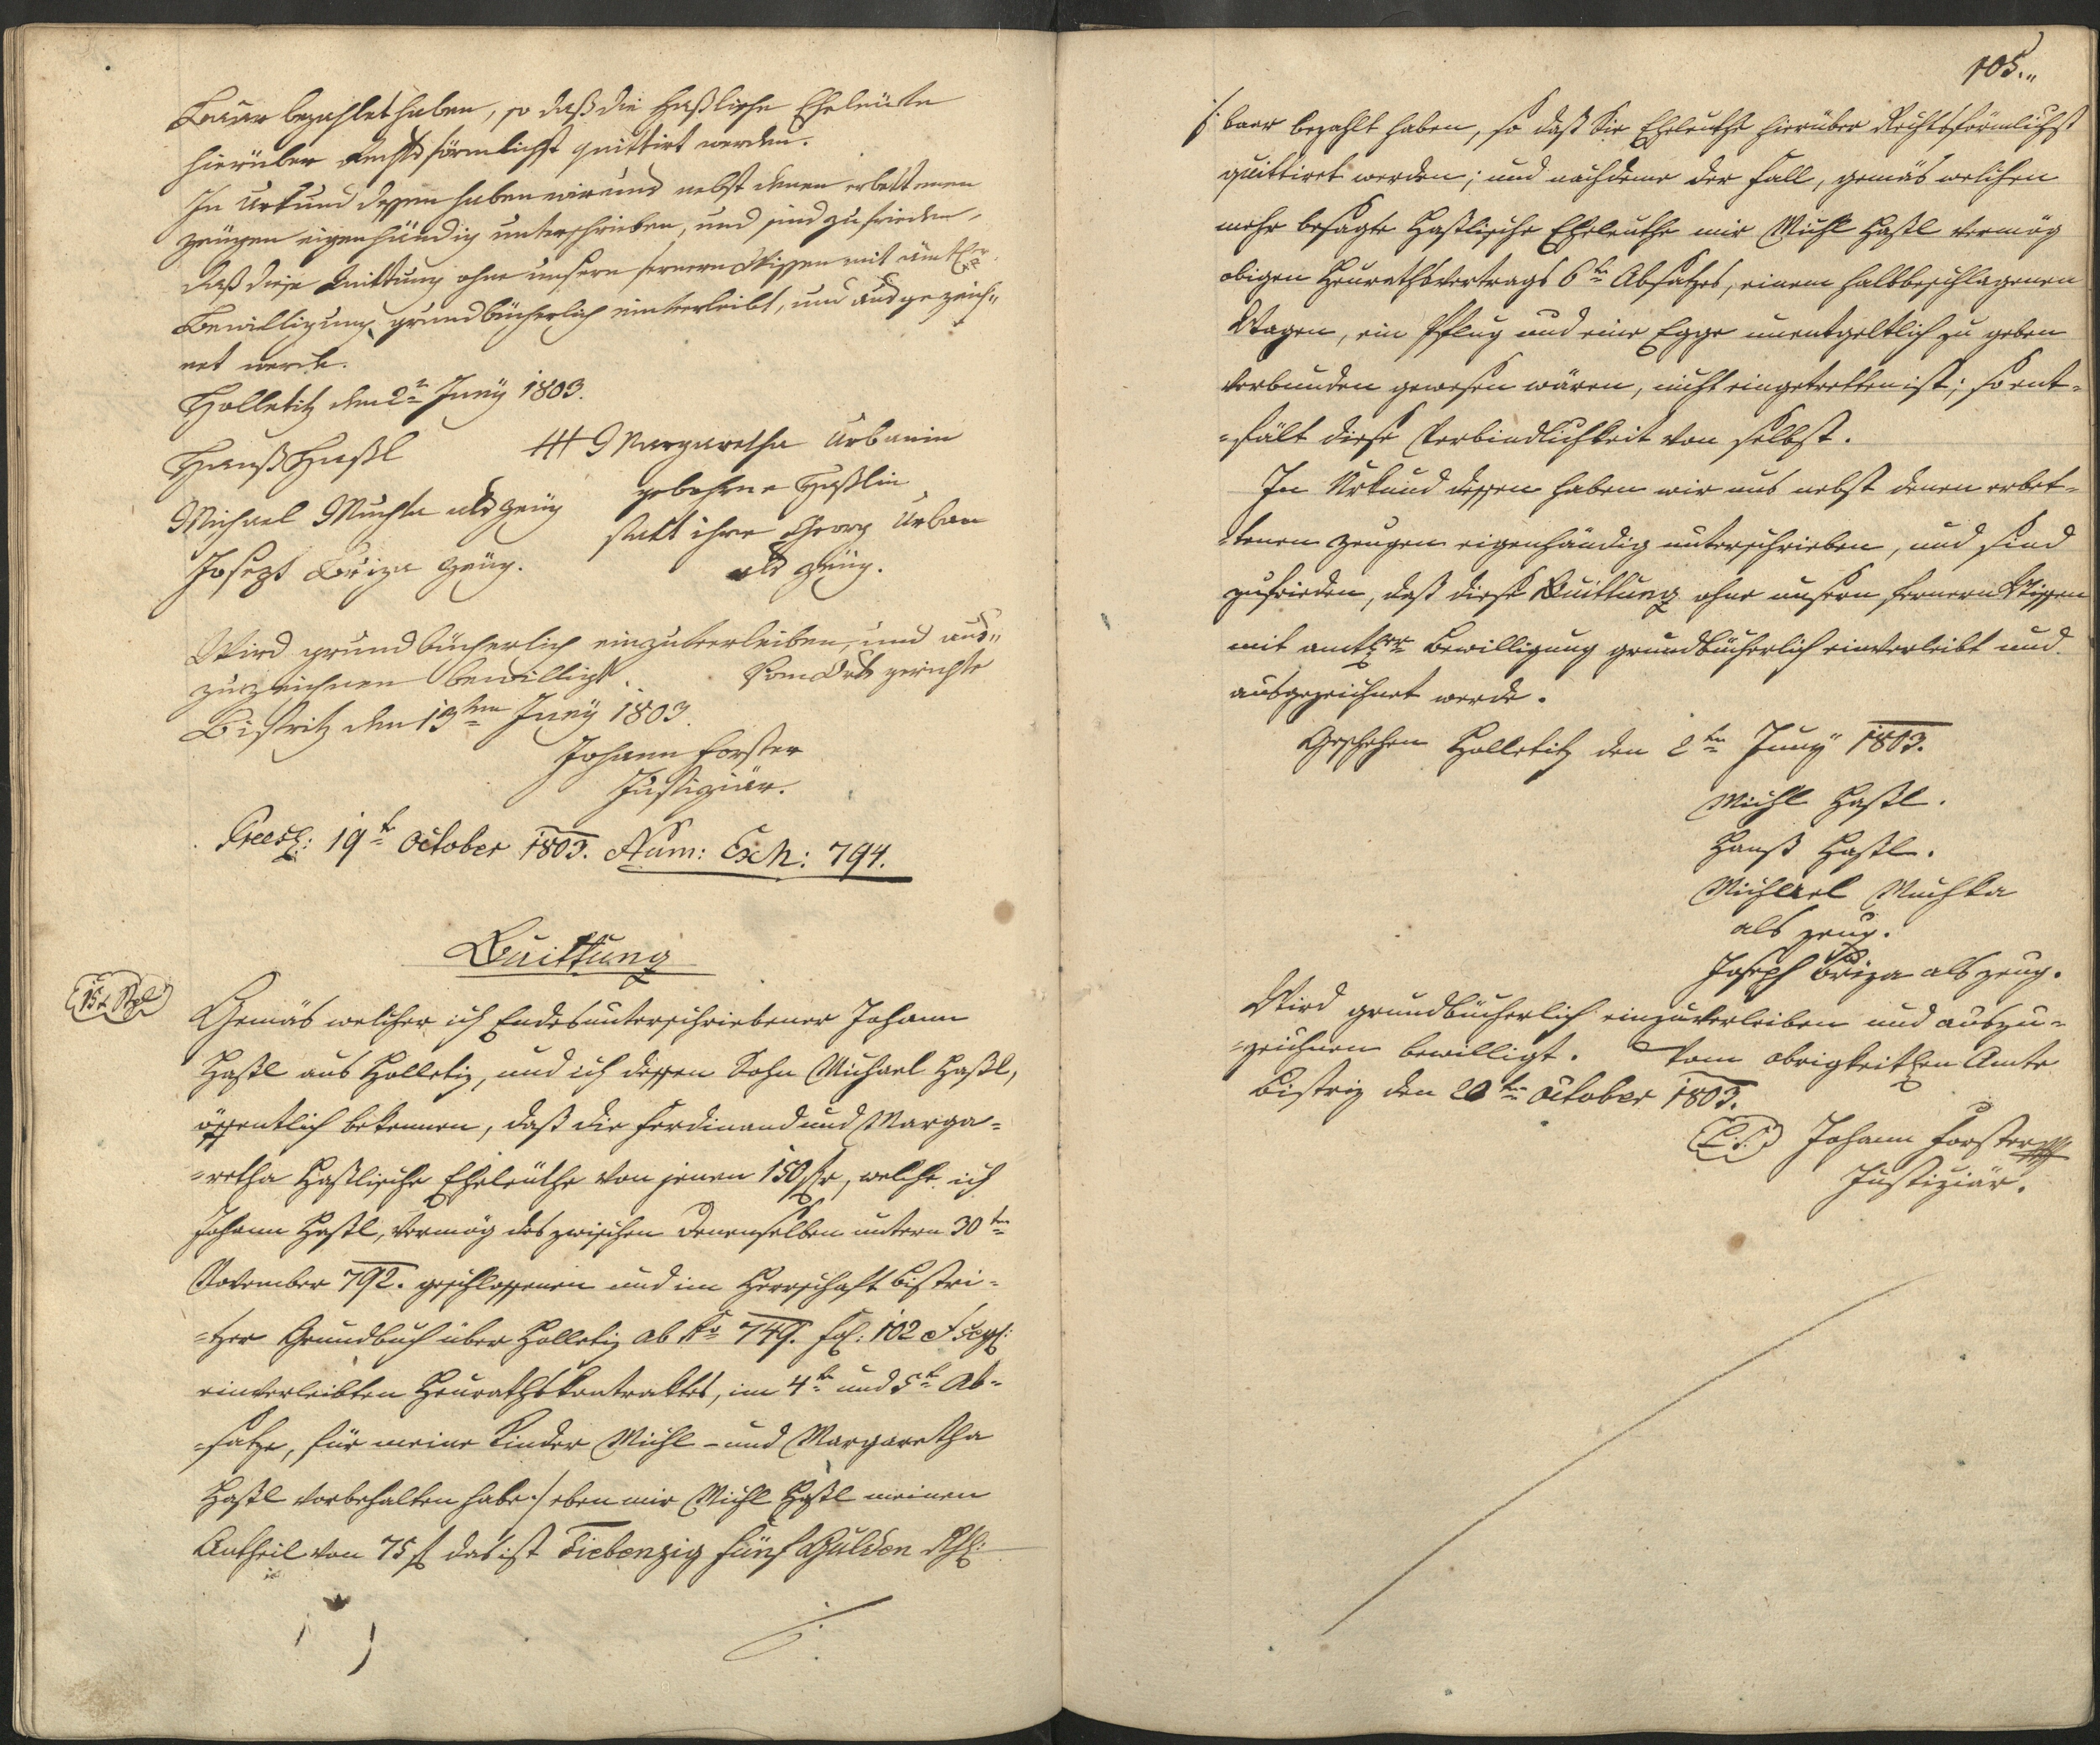 Baar bezahlet haben, so daß die Haßlische Eheleüte
hierüber Rechts förmlichst quittirt werden.
In Urkund dessen haben wir uns nebst denen erbettenen
Zeugen eigenhändig unterschrieben, und sind zufrieden,
daß diese Quittung ohne unsern fernern Wissen mit amtl.
Bewilligung grundbücherlich einverleibt, und ausgezeich"
net werde.
Holletitz den 2n Juny 1803.
Hanß Haßl
+++ Margaretha Urbanin
gebohrne Haßlin
statt ihre Georg Urban
als Zeüg.
Michael Muchka als Zeüg
Joseph Briza Zeüg.
Wird grundbücherlich einzuverleiben, und aus"
zuzeichnen bewilligt. Vom Orts gerichte
Bistritz den 13ten Juny 1803.
Johann Forster
Justiziär.
Praes: 19te October 1803. Num: Exh: 794.
Quittung
15 x Stpl
Gemäs welcher ich Endesunterschriebener Johann
Haßl aus Holletiz, und ich dessen Sohn Michael Haßl,
öffentlich bekennen, daß die Ferdinand und Marga=
=retha Haßlische Eheleüthe von jenen 150 f, welche ich
Johann Haßl, vermög des zwischen denenselben untern 30ten
November 792. geschlossenen und im Herrschaft Bistri=
=tzer Grundbuch über Holletiz ab Ao 749. fol: 102 et seq:
einverleibten Heurathskontraktes, im 4ten und 5ten Ab=
=satze, für meine Kinder Michl - und Margaretha
Haßl vorbehalten habe ./ eben mir Michl Haßl meinen
Antheil von 75 f das ist Siebenzig fünf Gulden Rh:
./.
105.
./. baar bezahlt haben, so daß Sie Eheleuthe hierüber Rechtsförmlichst
quittiret werden; und nachdeme der Fall, gemäs welchen
mehr besagte Haßlische Eheleuthe mir Michl Haßl vermög
obigen Heurathsvertrags 6ten Absatzes, einem halbbeschlagenen
Wagen, ein Pflug und eine Egge unentgeltlich zu geben
verbunden gewesen wären, nicht eingetretten ist; so ent=
=fält diese Verbindlichkeit von selbst.
In Urkund dessen haben wir uns nebst denen erbet=
=tenen Zeugen eigenhändig unterschrieben, und sind
zufrieden, daß diese Quittung ohne unsern fernern Wissen
mit amtl. Bewilligung grundbücherlich einverleibt und
ausgezeichnet werde.
Geschehen Holletitz den 2ten Juny 1803.
Michl Haßl.
Hanß Haßl.
Michael Muchka
als Zeug.
Joseph Briza als Zeug.
Wird grundbücherlich einzuverleiben und auszu=
=zeichnen bewilligt. Vom obrigkeitlen Amte
Bistriz den 20ten October 1803.
L. S. Johann Forster
Justiziär.